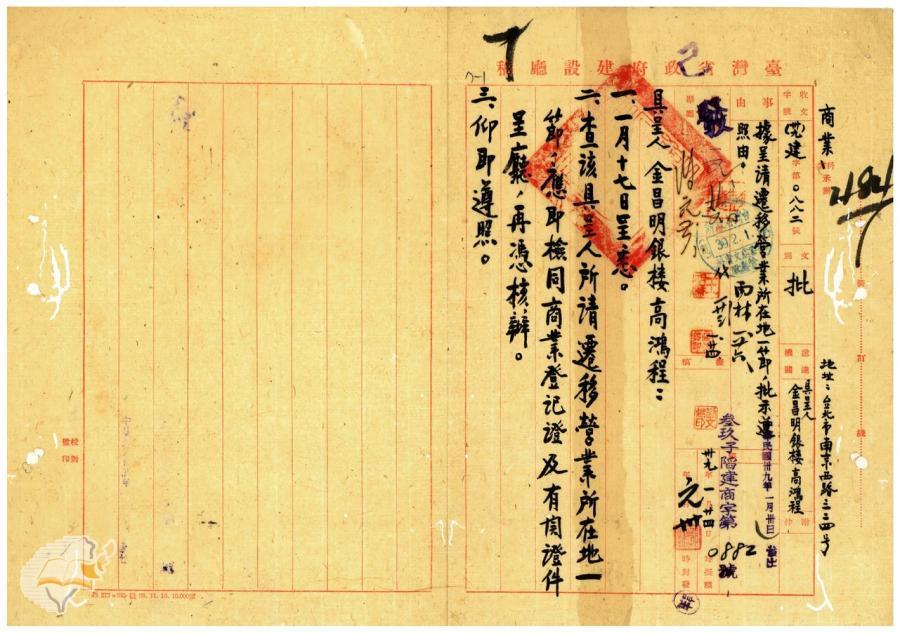 臺灣省政府建設廳稿
商業
484
地址：台北市南京西路二三四号
收文
字號
建
字第〇八八二號
文別
批
送達機關
具呈人
金昌明銀楼高鴻程
附件
事由
據呈請遷移营業所在地一節，批示遵
照由。
39.2.1
民國卅九年一月卅日
叁玖子
建商字第
0882
號
卅九年一月
具呈人金昌明銀楼高鴻程：
一、一月十七日呈悉。
二、查該具呈人所請遷移营業所在地一
節，應即檢同商業登记證及有関證件
呈廳，再憑核辦。
三、仰即遵照。
校對
監印
7-1